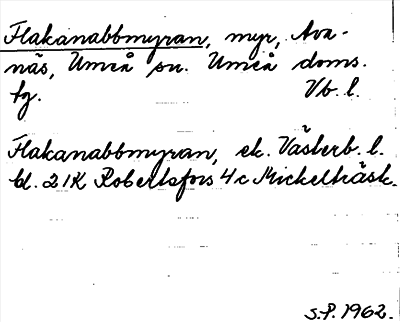 Flakanabbmyran, myr, Ava-
näs, Umeå sn. Umeå doms.
tg. Vb. l.
Flakanabbmyran, ek. Västerb. l.
bl. 21K Robertsfors 4c Mickelträsk.
S.P. 1962.